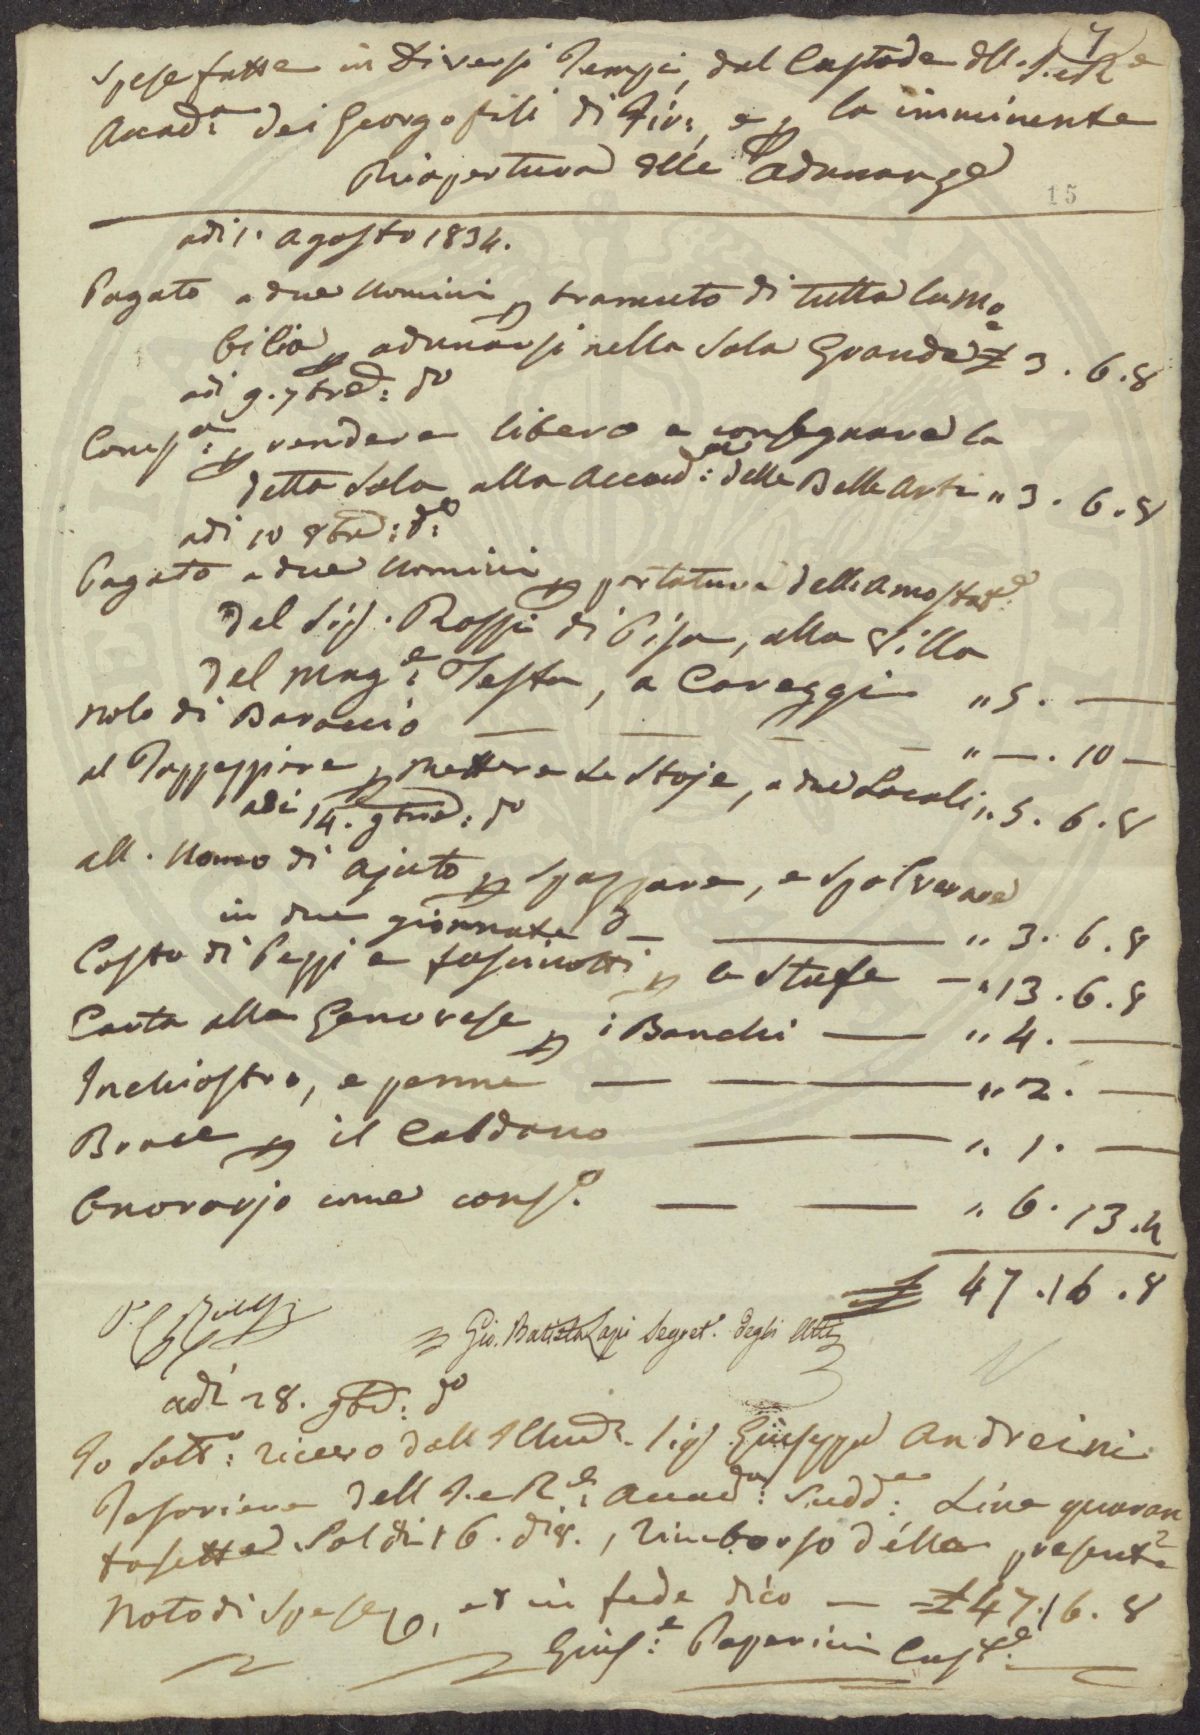 7
Spese fatte in Diversi Tempi, dal Custode dll. I. e R.e
Accad.a dei Georgofili di Fir:, e p la imminente
Riapertura dlle adunanze
15
adi 1. agosto 1834.
Pagato a due Uomini p tramuto di tutta la mo
bilia p adunarsi nella Sala Grande £ 3. 6. 8
adi 9. 7bre: do
Comes.a: p rendere libero e consegnare la
detta Sala alla Accad:a delle Belle Arti " 3. 6. 8
adi 10 8bre: do:
Pagato a due Uomini p portatura delli amostat.e:
del Sig. Rossi di Pisa, alla Villa
del Mag.e: Testa, a Careggi " 5. —
Nolo di Baroccio — — — — " —. 10 —
al Tappeppiere p mettere Le Stoje, a due Locali ". 5. 6. 8
adi 14. 9bre: do
all. Uomo di ajuto p spazzare, e spolverare
in due giornate — — " 3. 6. 8
Costo di Pezzi e fascinotti p le Stufe — " 13. 6. 8
Carta alla Genovese p i Banchi — " 4. —
Inchiostro, e penne — — — " 2. —
Brace p il Caldano — — " 1. —
Onorario come cons.o — — " 6. 13. 4
£ 47. 16. 8
Gio. Batista Lapi Segret. degli Atti
adi 28. 9bre: do
Io Sott.o: ricevo dall Illmo. Sig Giuseppe Andreini
Tesoriere dell I. e R.e: Accad.a: Sudd.a: Lire quaran
tasette Soldi 16. d 8., rimborso della presente
Nota di Spese, ed in fede dico — £ 47. 16. 8
Gius.e: Paperini Cust.e: